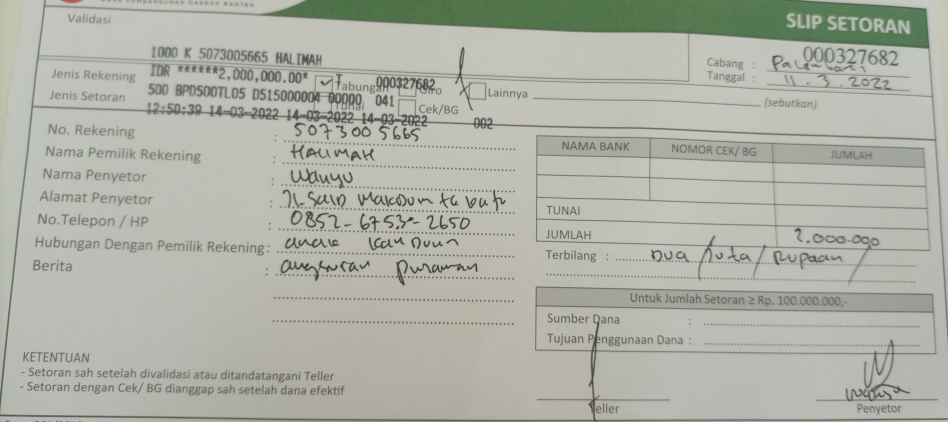 BANK PEMBANGUNAN DAERAH BANTEN
Validasi
SLIP SETORAN
1000 K 5073005665 HALIMAH
000327682
Cabang :
Tanggal : 11.3.2022
Jenis Rekening
IDR ******2,000,000.00*
Tabungan
000327682
Giro
Lainnya
(sebutkan)
Jenis Setoran
500 BPD500TL05 D515000004 00000 041
Tunai
Cek/BG
12:50:39 14-03-2022 14-03-2022 14-03-2022 002
No. Rekening : 5073005665
Nama Pemilik Rekening : HALIMAH
Nama Penyetor : Wahyu
Alamat Penyetor : Jl. Said
No.Telepon / HP : 0852-6753-2650
Hubungan Dengan Pemilik Rekening: anak kandung
Berita : angsuran pinjaman
NAMA BANK NOMOR CEK/ BG JUMLAH
TUNAI
JUMLAH 2.000.000
Terbilang : Dua Juta Rupiah
Untuk Jumlah Setoran ≥ Rp. 100.000.000,-
Sumber Dana :
Tujuan Penggunaan Dana :
KETENTUAN
- Setoran sah setelah divalidasi atau ditandatangani Teller
- Setoran dengan Cek/ BG dianggap sah setelah dana efektif
Teller
Penyetor